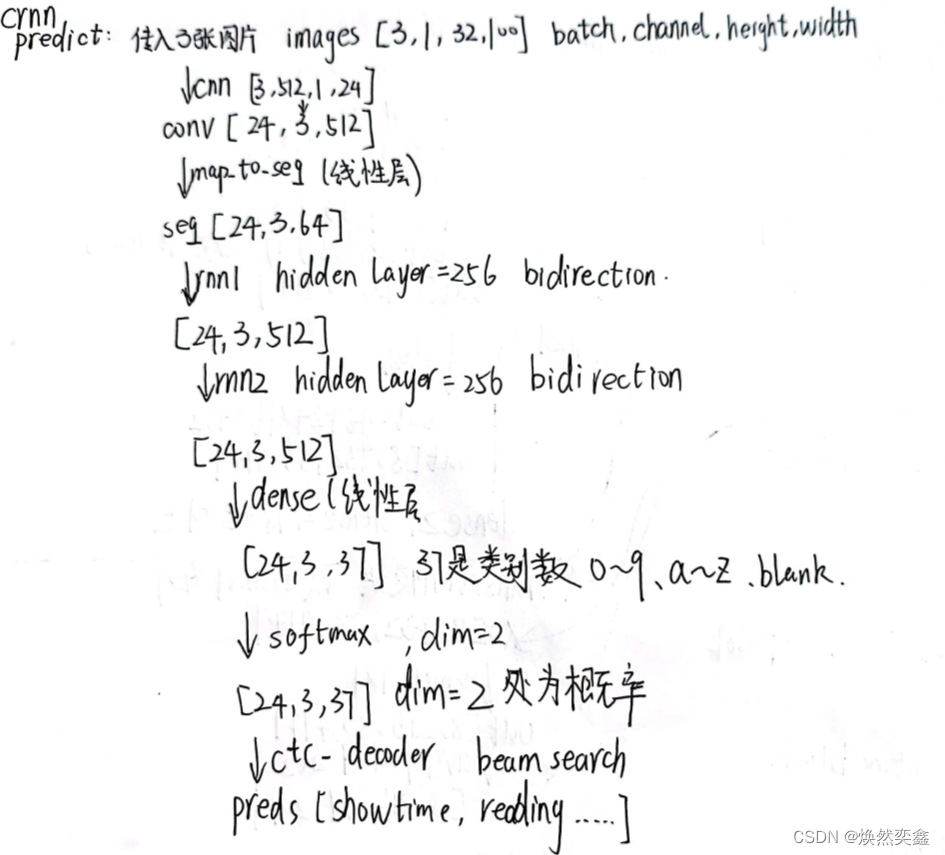 crnn
predict: 传入3张图片 images [3,1,32,100] batch,channel,height,width
↓cnn [3,512,1,24]
conv [24,3,512]
↓map-to-seq (线性层)
seq [24,3,64]
↓rnn1 hidden layer=256 bidirection.
[24,3,512]
↓rnn2 hidden layer=256 bidirection
[24,3,512]
↓dense (线性层
[24,3,37] 37是类别数 0~9、a~z、blank.
↓softmax ,dim=2
[24,3,37] dim=2处为概率
↓ctc-decoder beam search
preds [showtime, reading .....]
CSDN @焕然奕鑫